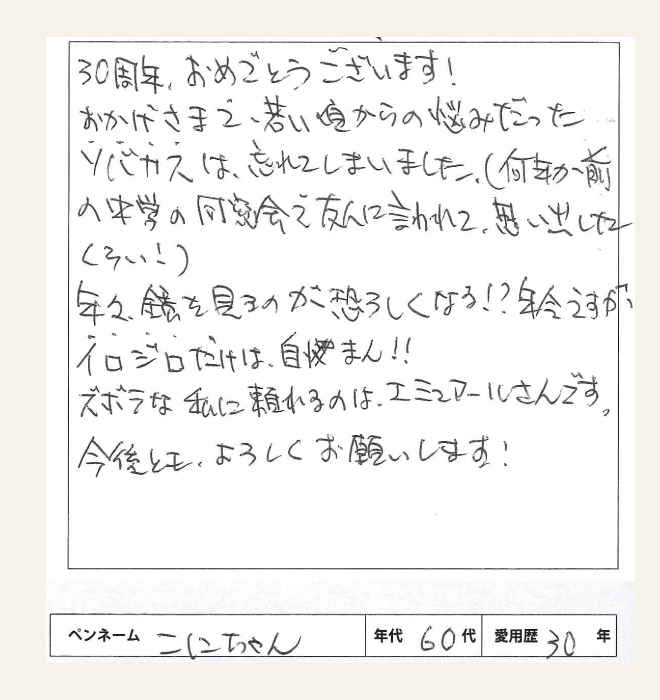 30周年、おめでとうございます！
おかげさまで、若い頃からの悩みだった
ソバカスは、忘れてしまいました。(何年か前
の中学の同窓会で友人に言われて、思い出した
くらい！)
年々、鏡を見るのが恐ろしくなる！？年令ですが、
イロジロだけは、自慢まん！！
ズボラな私に頼れるのは、エミュアールさんです。
今後とも、よろしくお願いします！
ペンネーム こにちゃん 年代 60代 愛用歴 30年